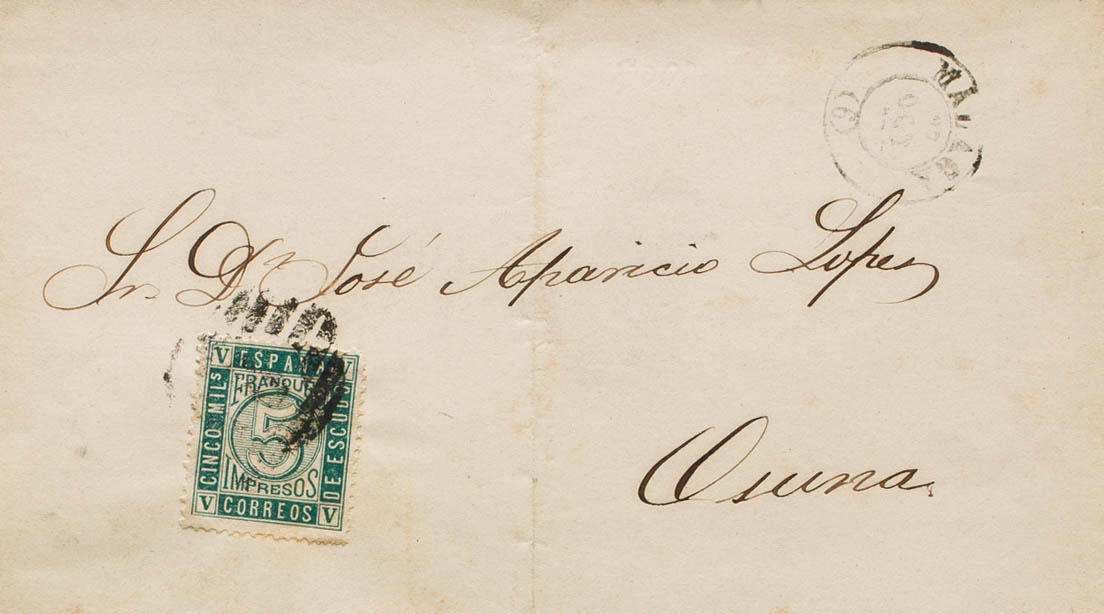 MALAGA
(9)
Sr. Dn José Aparicio Lopez
V ESPAÑA V
CINCO MILs
FRANQUEO
5
IMPRESOS
DE ESCUDO
V CORREOS V
Osuna.